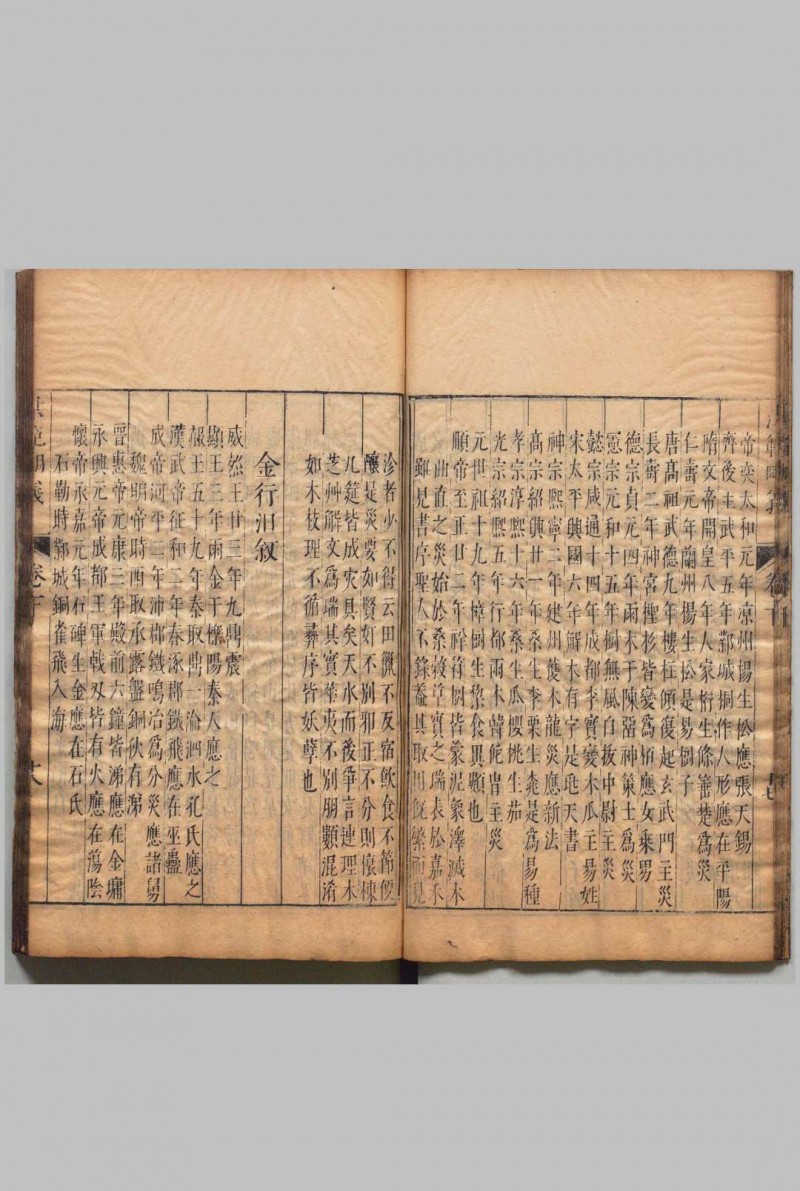 帝奕太和元年凉州揚生松應張天錫
齊後主武平五年鄴城桐作人形應在平陽
隋文帝開皇八年人家衖生條箠楚爲災
仁壽元年蘭州揚生松是易樹子
唐髙祖武德九年樓柱傾復起玄武門主災
長壽二年神宮檉杉皆變爲栢應女乘男
德宗貞元四年雨木于陳畱神策士爲災
憲宗元和十五年桐無風自拔中尉主災
懿宗咸通十四年成都李實變木瓜主易姓
宋太平興國六年解木有字是乩天書
神宗熙寧二年建州蔓木龍災應新法
髙宗紹興廿一年桑生李栗生桃是爲易種
孝宗淳熙十六年桑生瓜櫻桃生茄
光宗紹熙五年行都雨木韓侂冑主災
元世祖十九年樟樹生黎食異顆也
順帝至正廿二年祥符樹皆蒙泥象澤滅木
曲直之災始於桑穀草實之瑞表於嘉禾
雖見書序聖人不錄葢其取用旣繁而見
沴者少不得云田獵不反宿飮食不節便
釀是災要如賢奸不别邪正不分則懷棟
几筵皆成灾具矣天水而後爭言連理木
芝艸觧文爲瑞其實華夷不别朋顆混淆
如木枝理不循彛序皆妖孽也
金行汨敘
威烈王廿三年九鼎震
顯王三年雨金于櫟陽秦人應之
赧王五十九年秦取鼎一淪泗水孔氏應之
漢武帝征和二年春涿郡鐵飛應在巫蠱
成帝河平二年沛郡鐵鳴冶爲分災應諸舅
魏明帝時西取承露盤銅伙有淚
晉惠帝元康三年殿前六鐘皆涕應在金墉
永興元帝成都王軍戟刃皆有火應在蕩陰
懷帝永嘉元年石碑生金應在石氏
石勒時鄴城銅雀飛入海
卷下